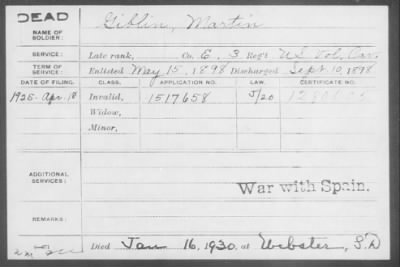 DEAD
NAME OF SOLDIER: Giblin, Martin
SERVICE: Late rank, Co. E, 3 Reg't U.S. Vol. Cav.
TERM OF SERVICE: Enlisted May 15, 1898 Discharged Sept. 10, 1898
DATE OF FILING. CLASS. APPLICATION NO. LAW. CERTIFICATE NO.
1925-Apr. 18 Invalid, 1517658 J/20
Widow,
Minor,
ADDITIONAL SERVICES:
War with Spain.
REMARKS:
Died Jan 16, 1930, at Webster, S.D